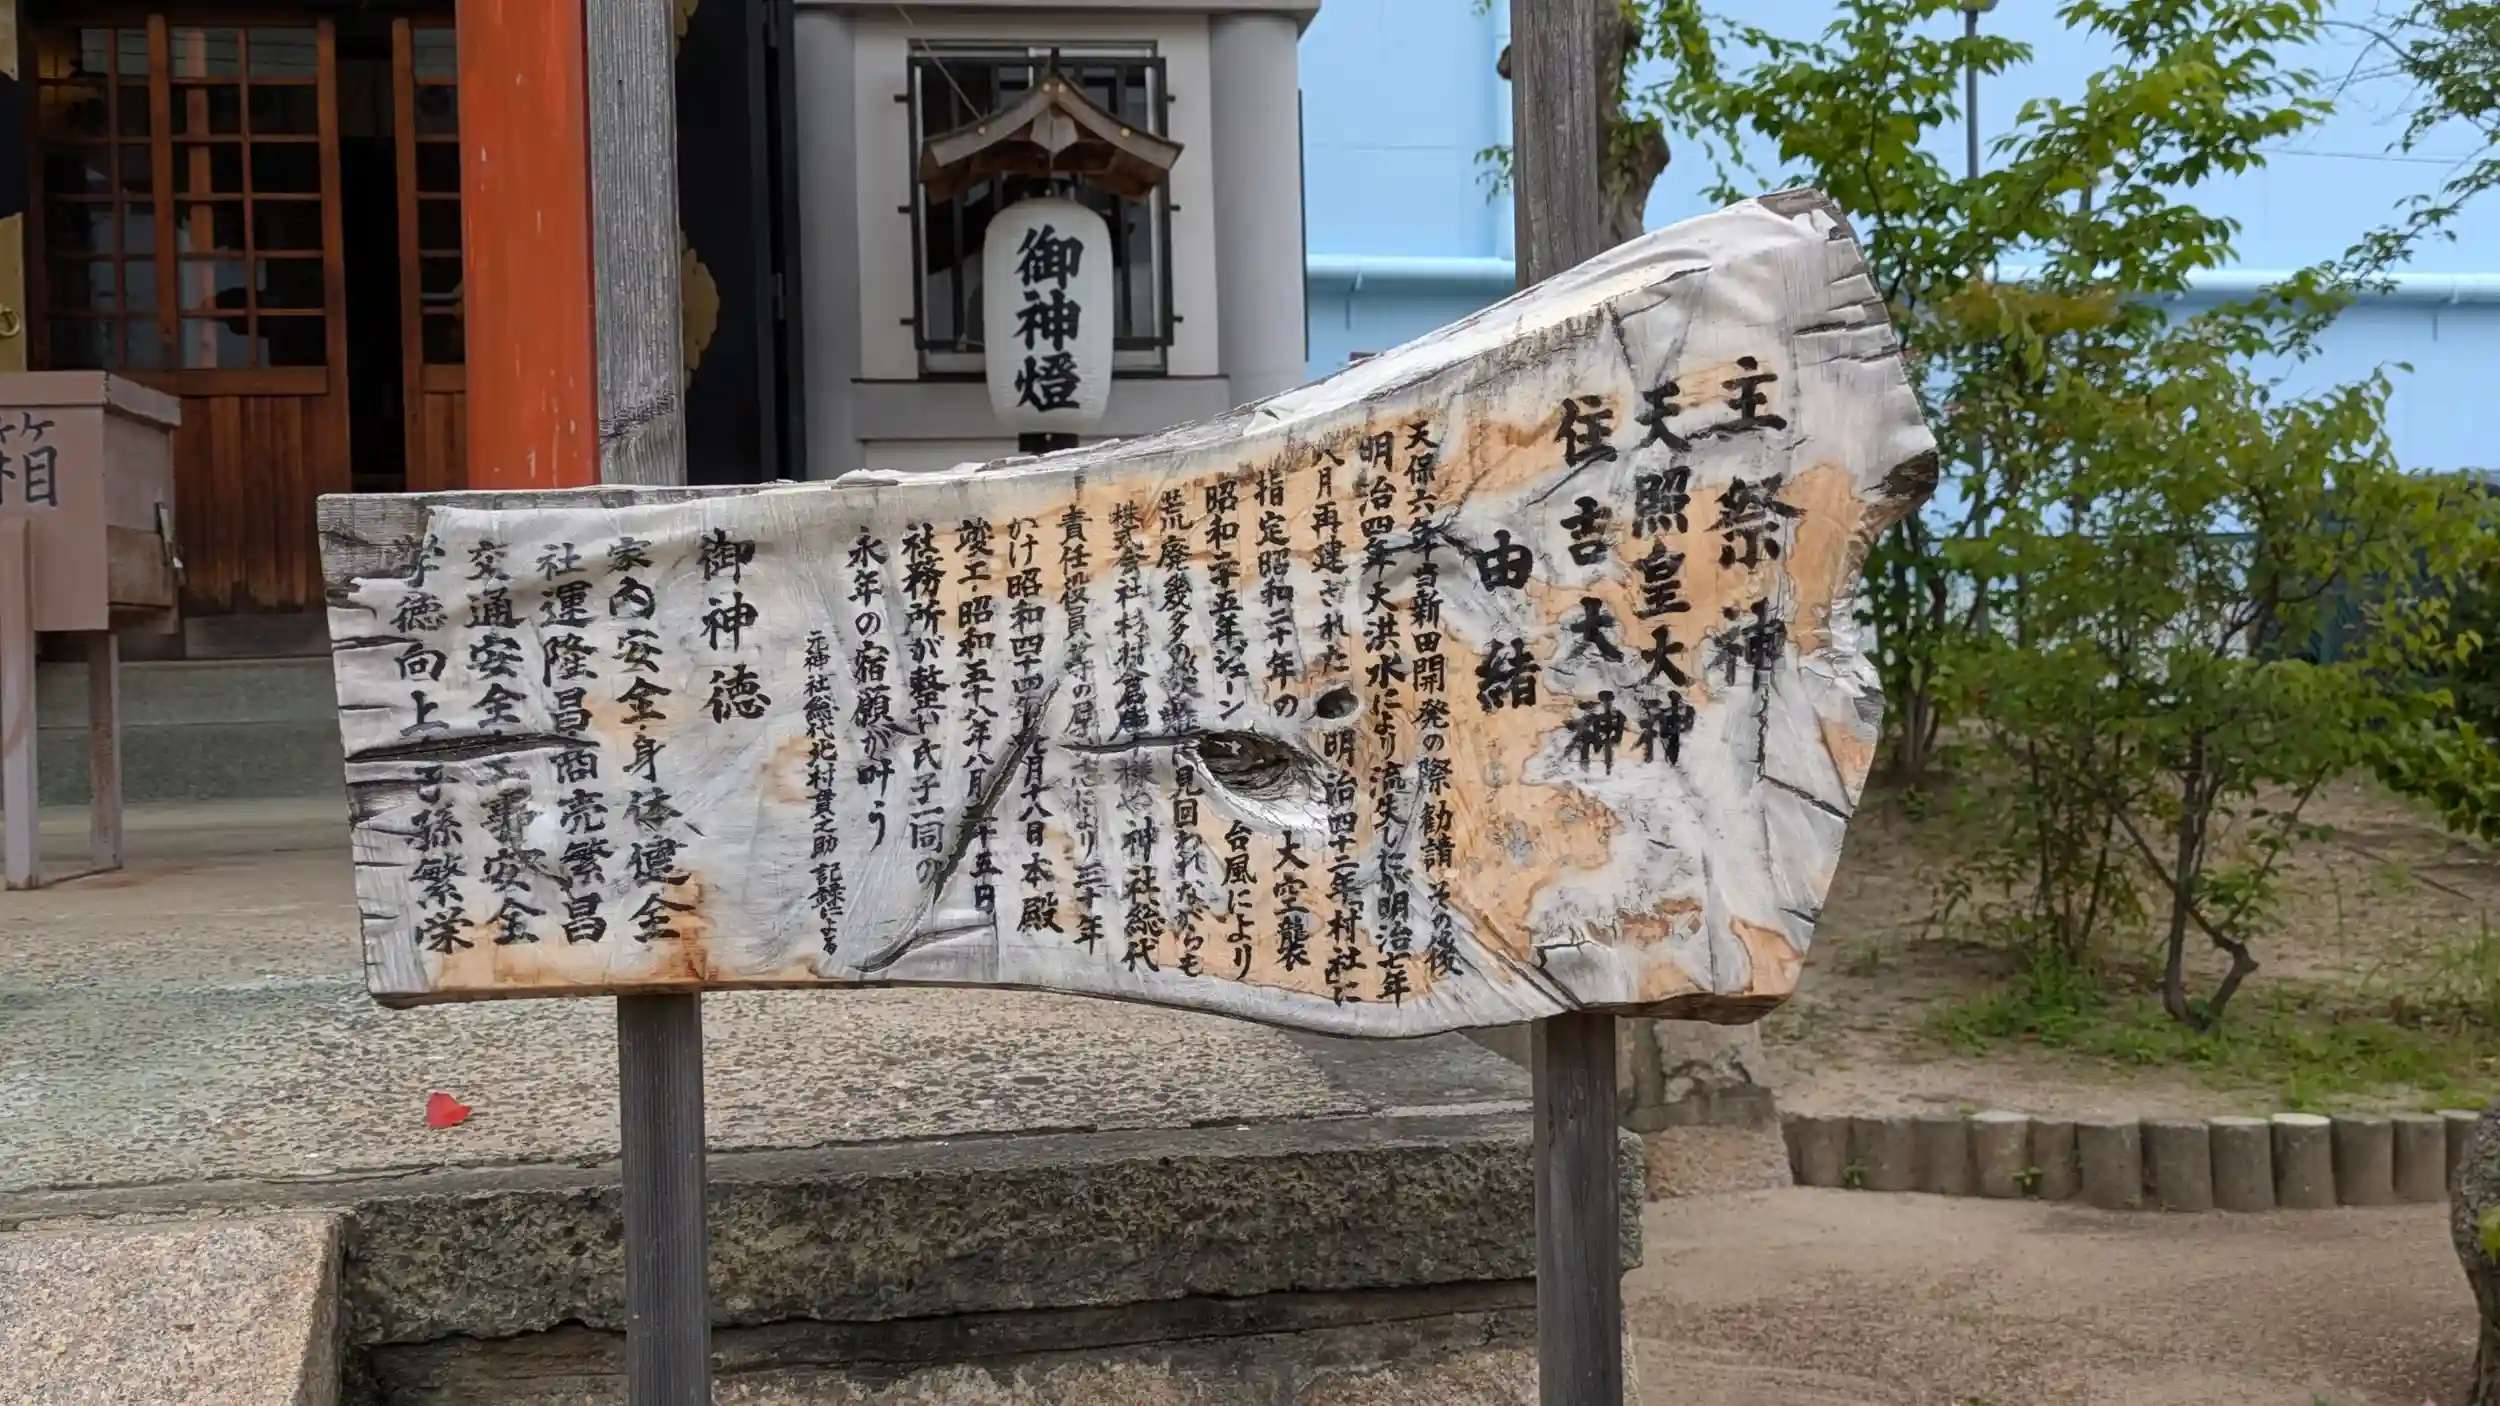 主祭神
天照皇大神
住吉大神
由緒
天保六年当新田開発の際勧請その後
明治四年大洪水により流失したが明治七年
八月再建された 明治四十二年村社に
指定昭和二十年の 大空襲
昭和二十五年ジェーン 台風により
荒廃幾多の に見回われながらも
株式会社杉村倉庫 様や神社総代
責任役員等の により三十年
かけ昭和四十四年 月十八日本殿
竣工・昭和五十八年八月二十五日
社務所が整い氏子一同の
永年の宿願が叶う
元神社総代北村貫之助 記録による
御神徳
家内安全・身体健全
社運隆昌・商売繁昌
交通安全・工事安全
学徳向上・子孫繁栄
御神燈
箱